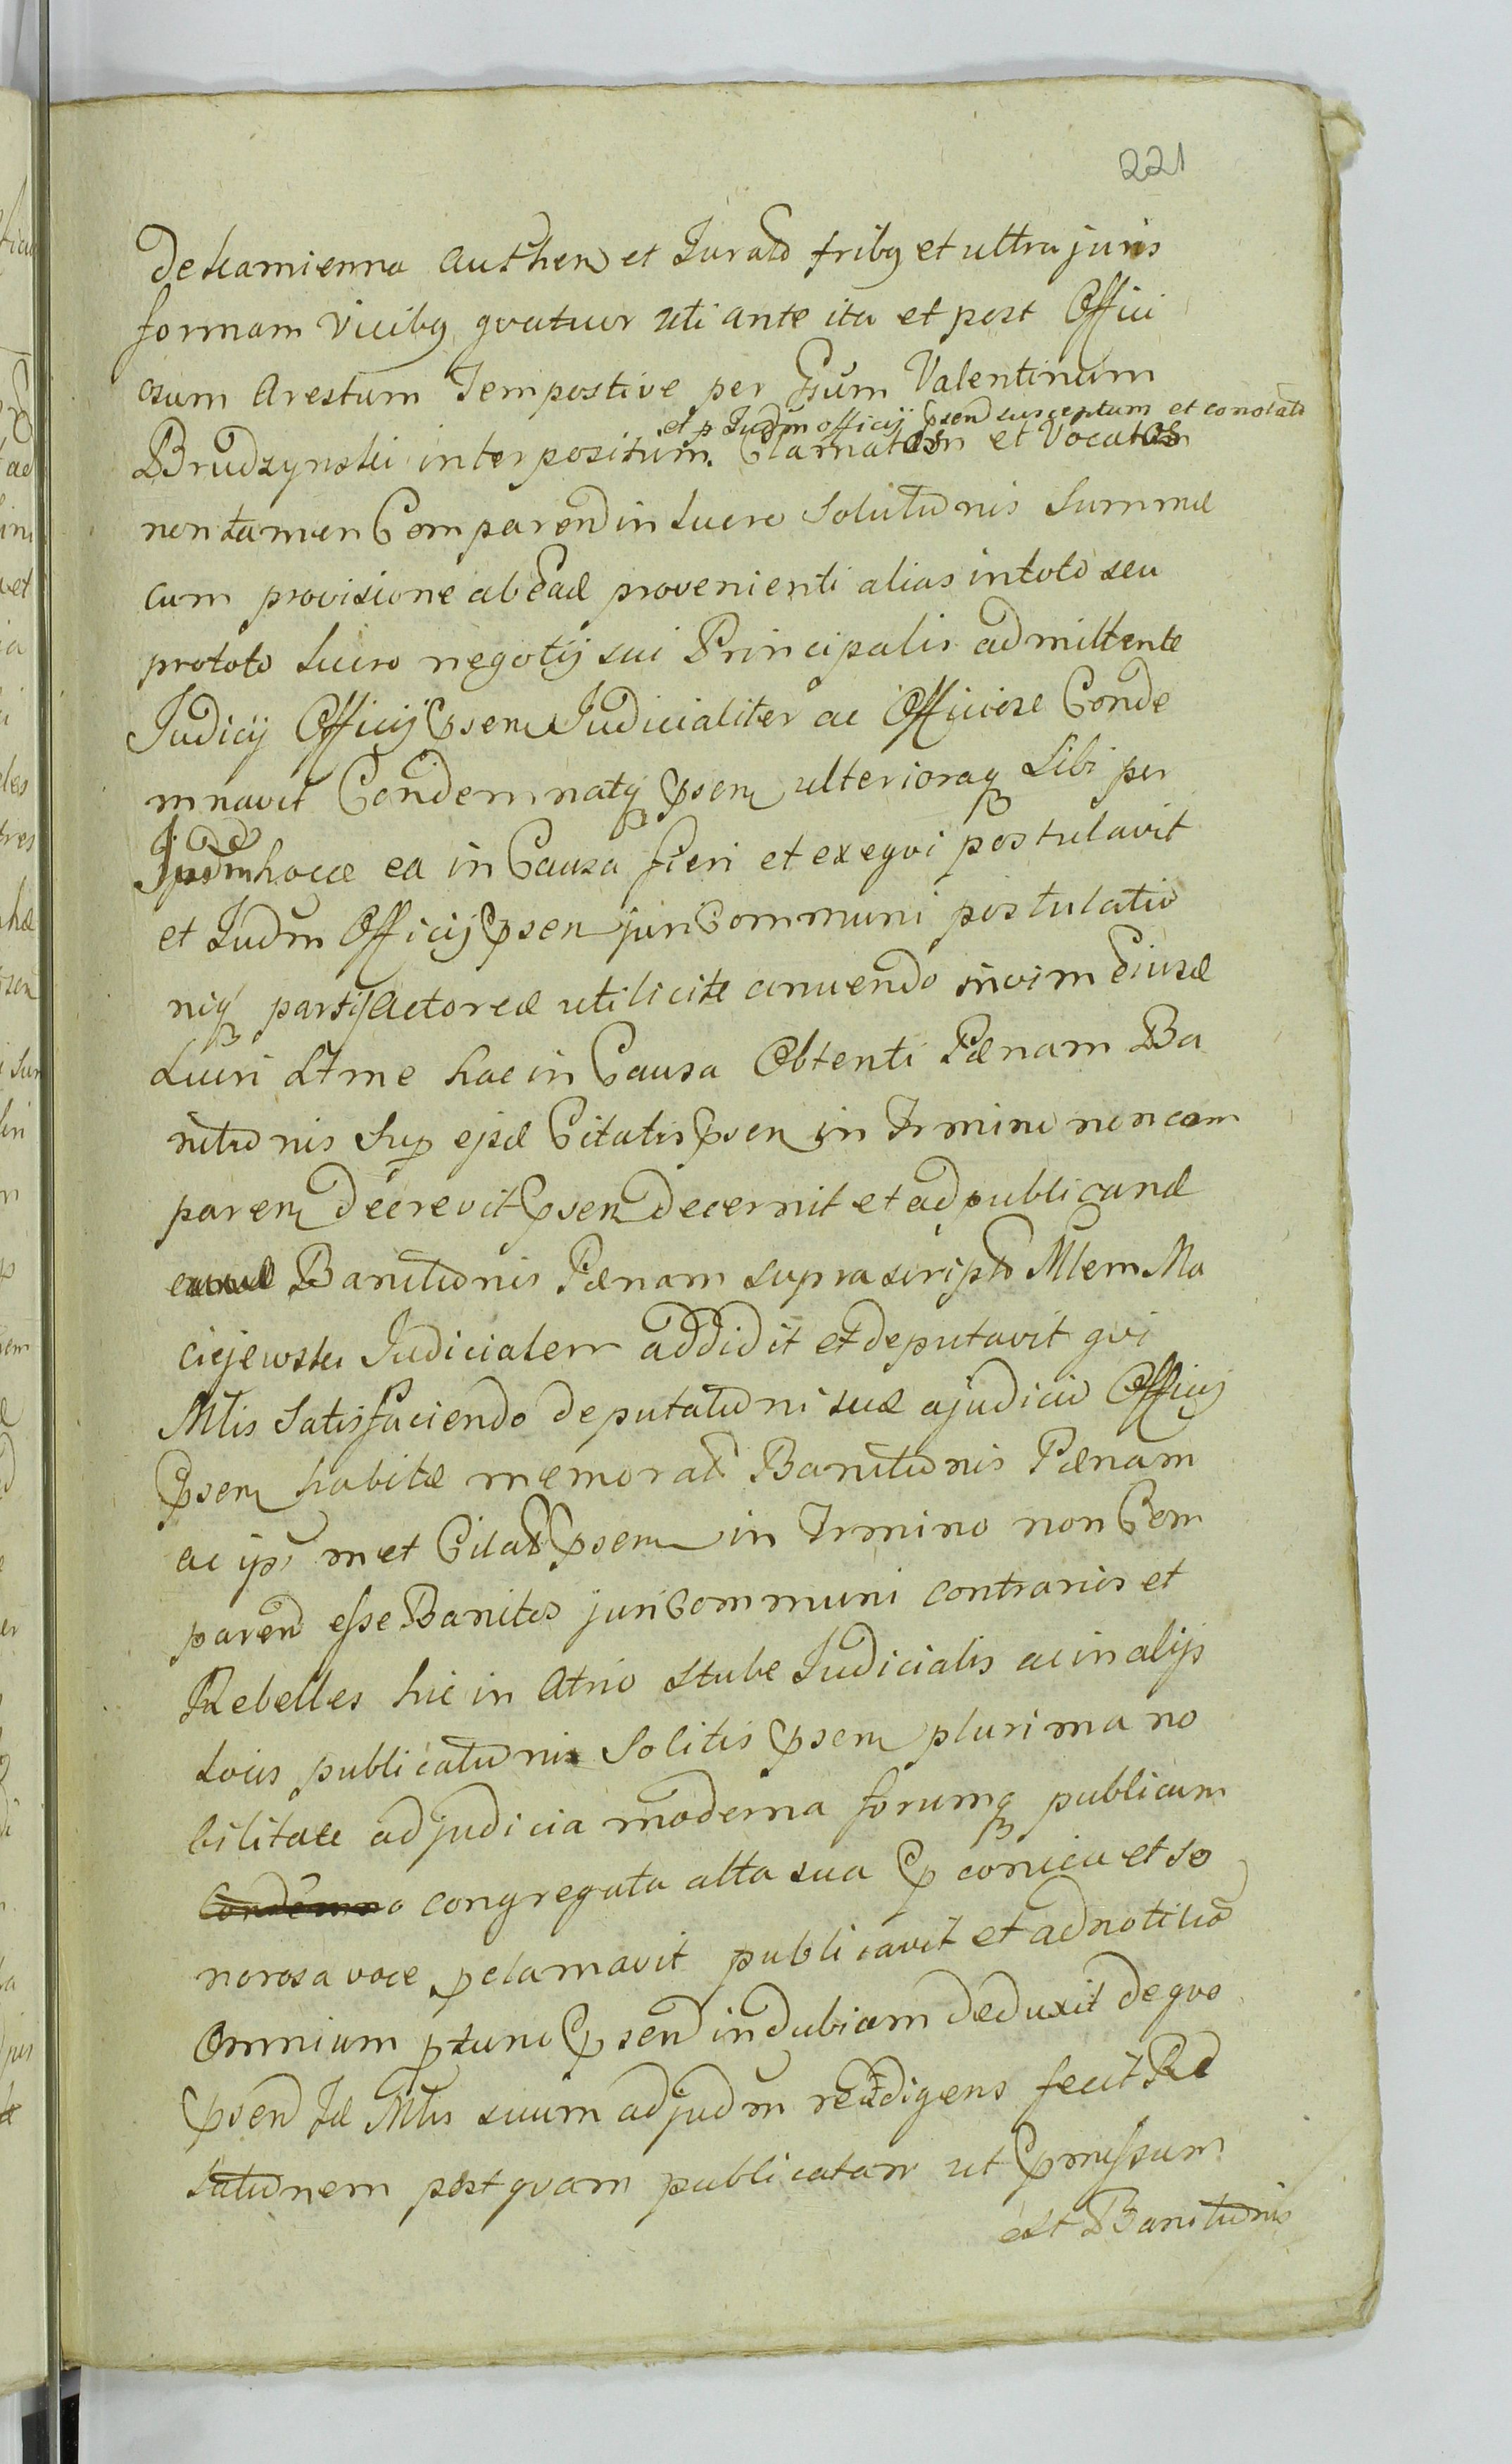 221
de Kamienna Authen et Jurato tribq et ultra juris
formam vicibq qvatuor uti ante ita et post Offici
osum Arestum Tempostive per Gsum Valentinum
et p Judm officij Psen susceptum et conotato
Brudzynski interpositum. Clamatos et Vocatos
non tamen Comparen in Lucro Solutionis Summæ
cum provisione ab Ead provenienti alias intoto seu
prototo Lucro negotij sui Principalis admittente
Judicij Officij Psen Judicialiter ac Officiose Conde
mnavit Condemnatq Psen ulterioraq Sibi per
Judm hocce ea in Causa fieri et exeqvi postulavit
et Judm Officij Psen juri Communi postulatio
niq partis Actoreæ utilicite annuendo invim Eiusd
Lucri Ltme hac in Causa Obtenti Pænam Ba
nitionis Sup ejsd Citatis Psen in Trmino non com
paren decrevit Psen decernit et ad publicand
eand Banitionis Pænam suprascripto Mlem Ma
ciejewski Judicialem addidit et deputavit qvi
Mlis Satisfaciendo deputationi suæ a judicio Officij
Psen habitæ memorat Banitionis Pænam
ac ips met Citat Psen in Trmino non Com
paren esse Banitos juri Communi contrarios et
Rebelles hic in Atrio Stubæ Judicialis ac in alijs
Locis publicationis Solitis Psen plurima no
bilitate ad judicia moderna forumq publicum
congregata alta sua P conica et so
norosa voce pclamavit publicavit et ad notitiā
omnium ptunc Psen indubiam deduxit de qvo
Psen Id Mlis suum ad judm redigens fecit Re
lationem postqvam publicatam ut Pmissum
est Banitionis